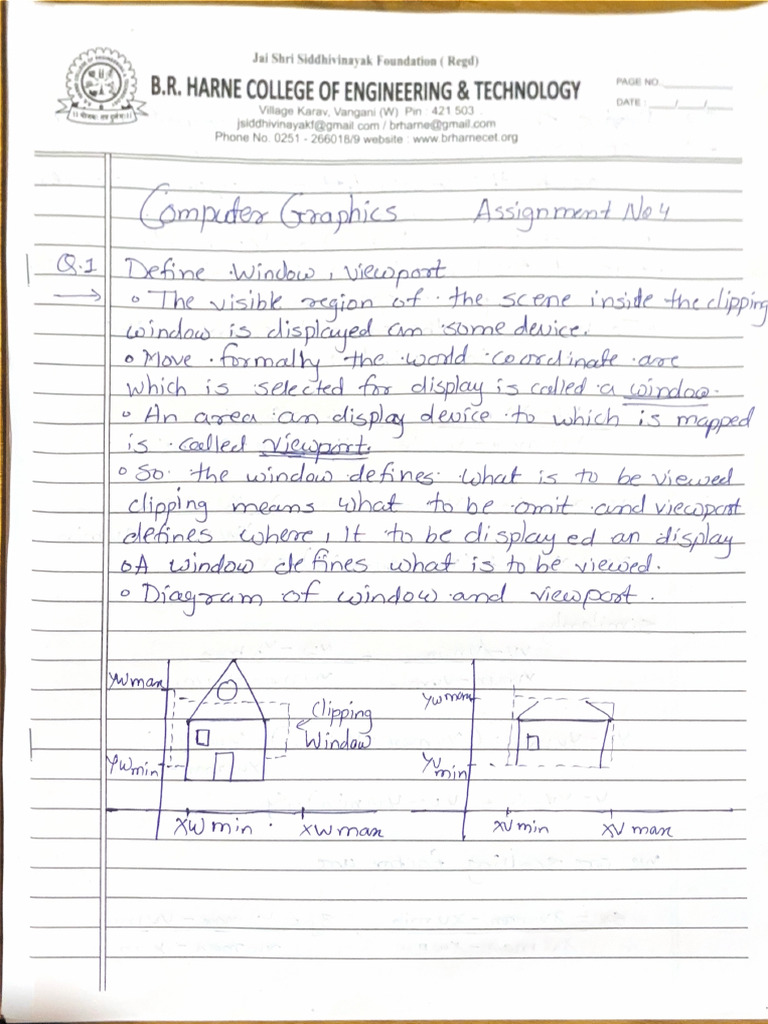 Jai Shri Siddhivinayak Foundation ( Regd)
B.R. HARNE COLLEGE OF ENGINEERING & TECHNOLOGY
Village Karav, Vangani (W) Pin : 421 503
jsiddhivinayakf@gmail.com / brharne@gmail.com
Phone No. 0251 - 266018/9 website : www.brharnecet.org
PAGE NO.
DATE : / /
Computer Graphics Assignment No 4
Q.1 Define window, viewport
→ • The visible region of the scene inside the clipping
window is displayed an some device.
• Move formally the world coordinate are
which is selected for display is called a window.
• An area an display device to which is mapped
is called viewport.
• So the window defines what is to be viewed
clipping means what to be omit and viewport
defines where, It to be display ed an display
• A window defines what is to be viewed.
• Diagram of window and viewport.
YW max
YW min
XW min
XW max
Clipping
Window
YW mem
YV min
XV min
XV max